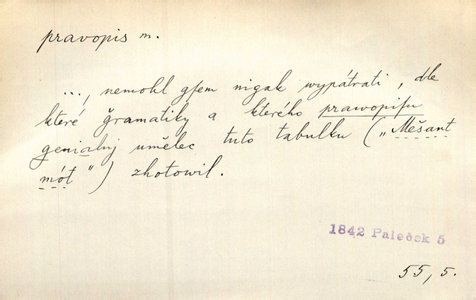 pravopis m.
..., nemohl gsem nigak wypátrati, dle
které gramatiky a kterého prawopisu
genialnj umělec tuto tabulku („Měšant
mót“) zhotowil.
1842 Paleček 5
55, 5.